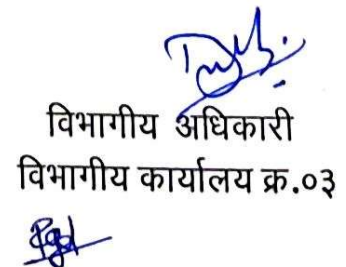 विभागीय अधिकारी
विभागीय कार्यालय क्र.०३